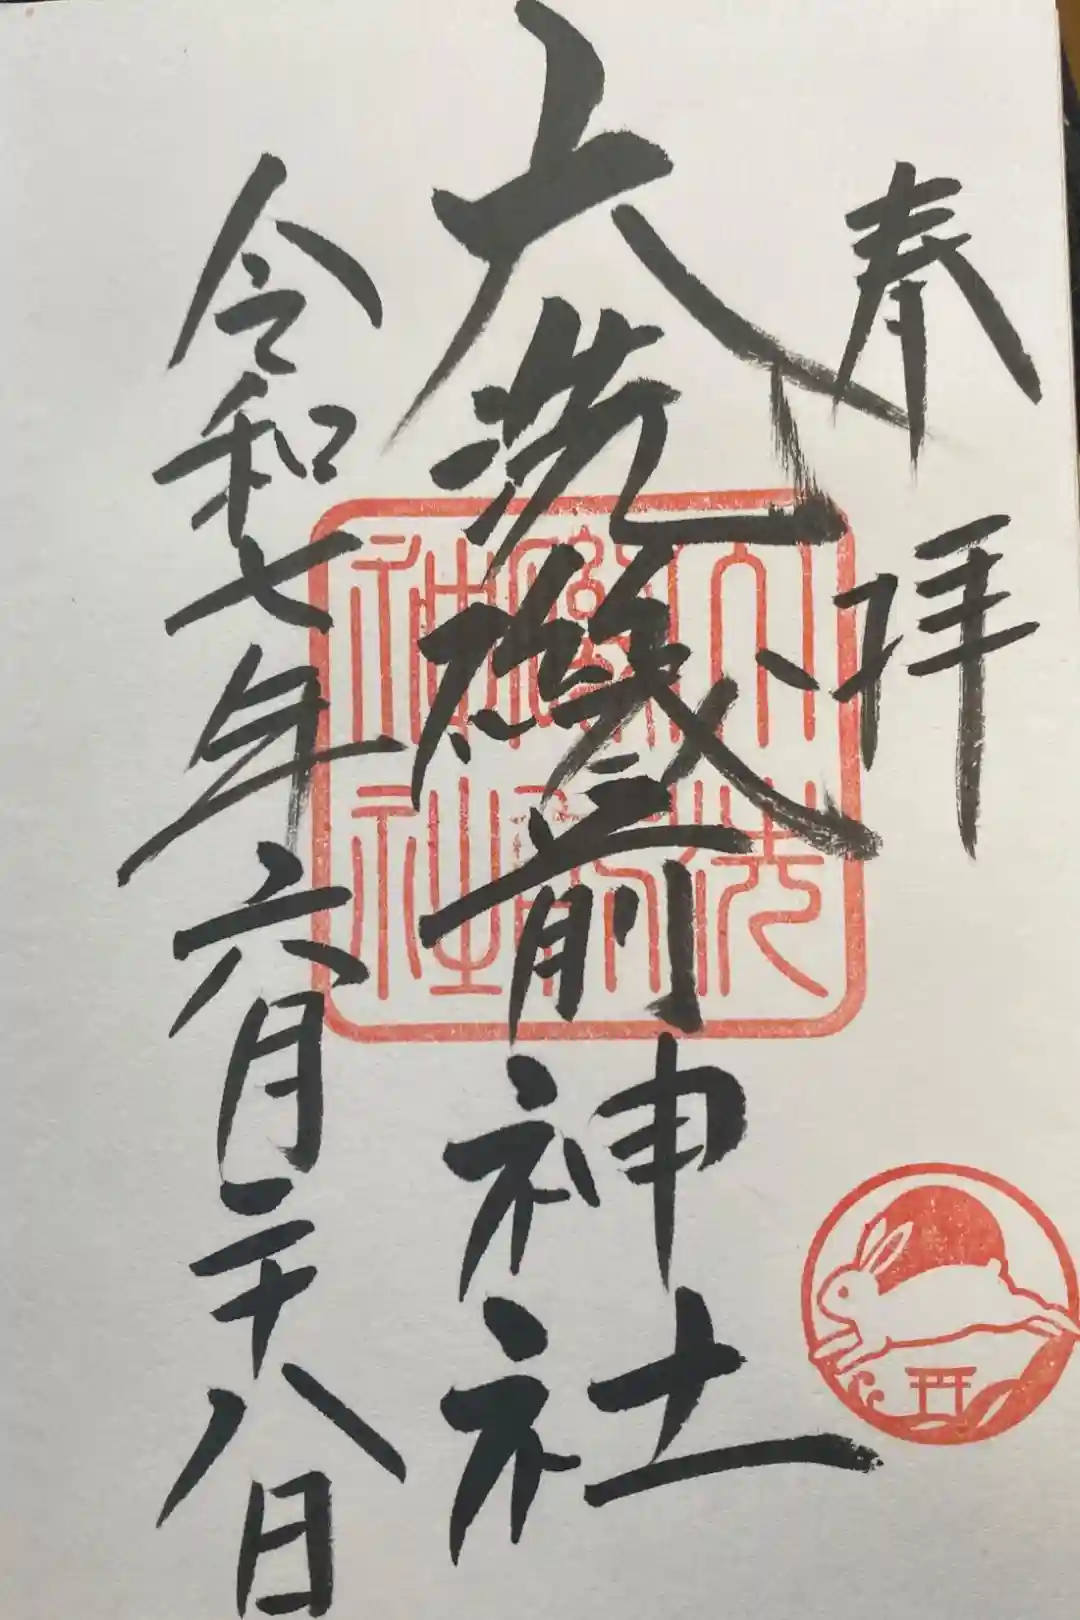 奉拝
大洗磯前神社
令和七年六月二十八日
大洗
磯前
神社